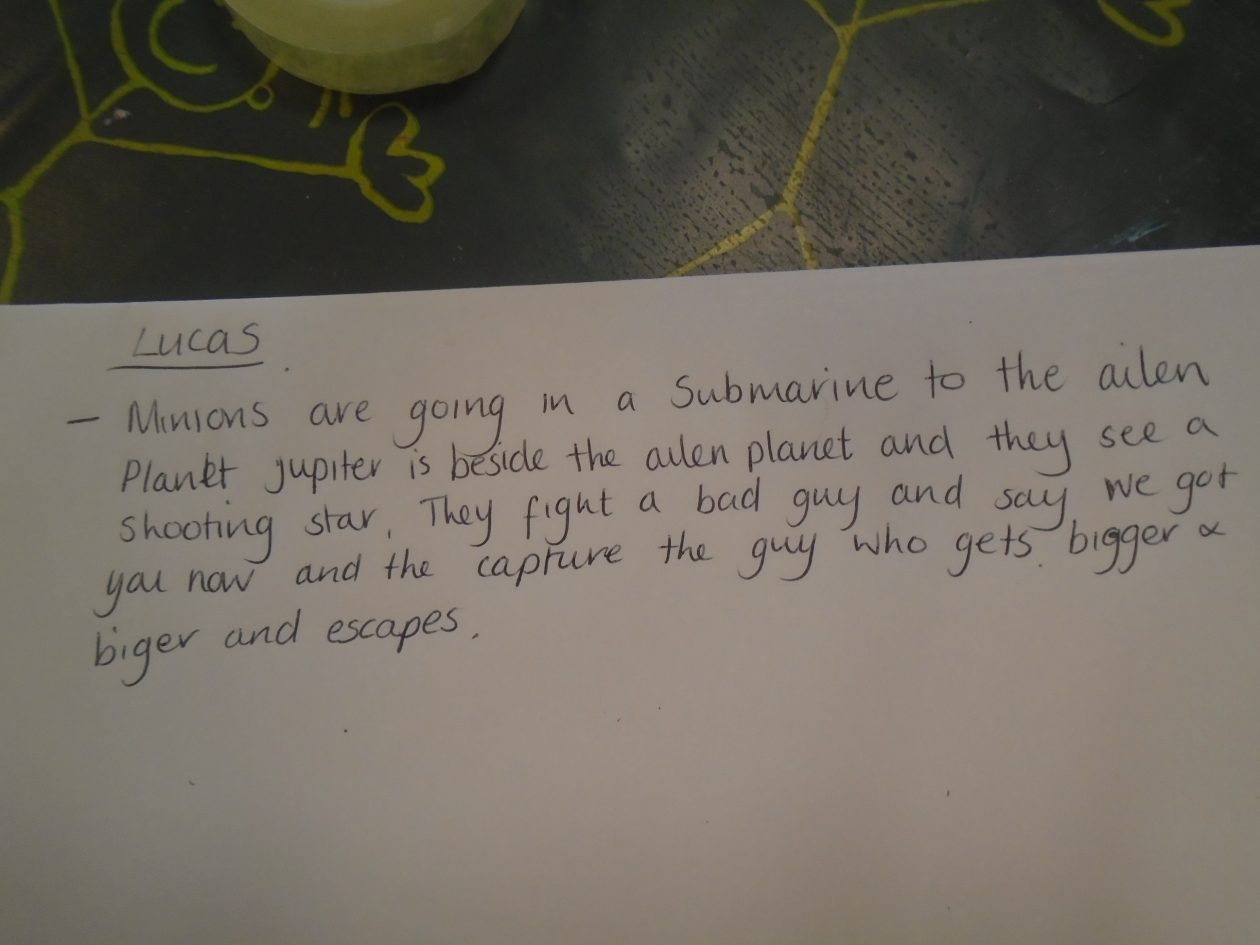 Lucas.
- Minions are going in a Submarine to the ailen
Planet jupiter is beside the ailen planet and they see a
shooting star. They fight a bad guy and say we got
you now and the capture the guy who gets bigger &
biger and escapes.